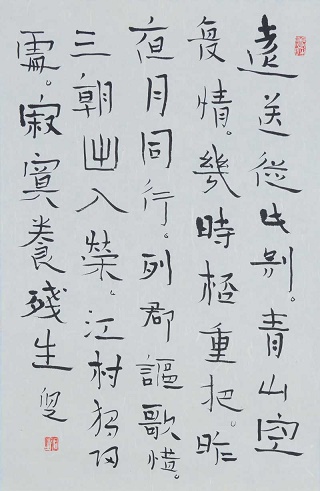 遠送從此别。青山空
复情。幾時桮重把。昨
夜月同行。列郡謳歌惜。
三朝出入榮。江村独归
處。寂寞養殘生